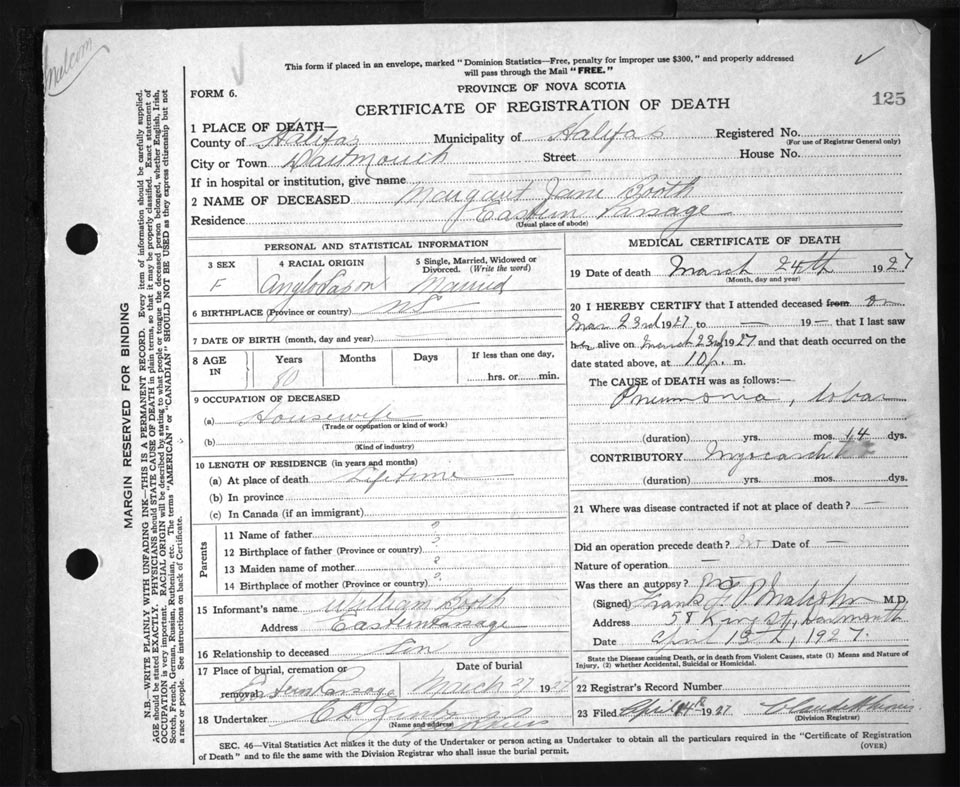 Malcom
This form if placed in an envelope, marked "Dominion Statistics—Free, penalty for improper use $300," and properly addressed
will pass through the Mail "FREE."
FORM 6.
PROVINCE OF NOVA SCOTIA
CERTIFICATE OF REGISTRATION OF DEATH
125
1 PLACE OF DEATH—
County of Halifax Municipality of Halifax Registered No.
(For use of Registrar General only)
City or Town Dartmouth Street House No.
If in hospital or institution, give name
2 NAME OF DECEASED Margaret Jane Booth
Residence Eastern Passage
(Usual place of abode)
PERSONAL AND STATISTICAL INFORMATION
3 SEX
F
4 RACIAL ORIGIN
Anglo Saxon
5 Single, Married, Widowed or
Divorced. (Write the word)
Married
6 BIRTHPLACE (Province or country) NS
7 DATE OF BIRTH (month, day and year)
8 AGE
IN
Years
80
Months
Days
If less than one day,
hrs. or min.
9 OCCUPATION OF DECEASED
(a) Housewife
(Trade or occupation or kind of work)
(b)
(Kind of industry)
10 LENGTH OF RESIDENCE (in years and months)
(a) At place of death Lifetime
(b) In province
(c) In Canada (if an immigrant)
Parents
11 Name of father ?
12 Birthplace of father (Province or country) ?
13 Maiden name of mother ?
14 Birthplace of mother (Province or country) ?
15 Informant's name William Booth
Address Eastern Passage
16 Relationship to deceased Son
17 Place of burial, cremation or
removal Eastern Passage
Date of burial
March 27 1927
18 Undertaker
(Name and address)
MEDICAL CERTIFICATE OF DEATH
19 Date of death March 24th 1927
(Month, day and year)
20 I HEREBY CERTIFY that I attended deceased from on
Mar 23rd 1927 to — 19 — that I last saw
her alive on March 23rd 1927 and that death occurred on the
date stated above, at 10 p. m.
The CAUSE of DEATH was as follows:—
Pneumonia, lobar
(duration) yrs. mos. 14 dys.
CONTRIBUTORY Myocarditis
(duration) yrs. mos. dys.
21 Where was disease contracted if not at place of death? —
Did an operation precede death? Date of —
Nature of operation —
Was there an autopsy? no
(Signed) Frank G. P. Malcolm M.D.
Address 58 King St, Dartmouth
Date April 13th, 1927.
State the Disease causing Death, or in death from Violent Causes, state (1) Means and Nature of
Injury, (2) whether Accidental, Suicidal or Homicidal.
22 Registrar's Record Number
23 Filed April 14th 1927
(Division Registrar)
SEC. 46—Vital Statistics Act makes it the duty of the Undertaker or person acting as Undertaker to obtain all the particulars required in the "Certificate of Registration
of Death" and to file the same with the Division Registrar who shall issue the burial permit.
(OVER)
MARGIN RESERVED FOR BINDING
N.B.—WRITE PLAINLY WITH UNFADING INK—THIS IS A PERMANENT RECORD. Every item of information should be carefully supplied.
AGE should be stated EXACTLY. PHYSICIANS should STATE CAUSE OF DEATH in plain terms, so that it may be properly classified. Exact statement of
OCCUPATION is very important. RACIAL ORIGIN will be described by stating to what people or tongue the deceased person belonged, whether English, Irish,
Scotch, French, German, Russian, Ruthenian, etc. The terms "AMERICAN" or "CANADIAN" SHOULD NOT BE USED as they express citizenship but not
a race or people. See instructions on back of Certificate.